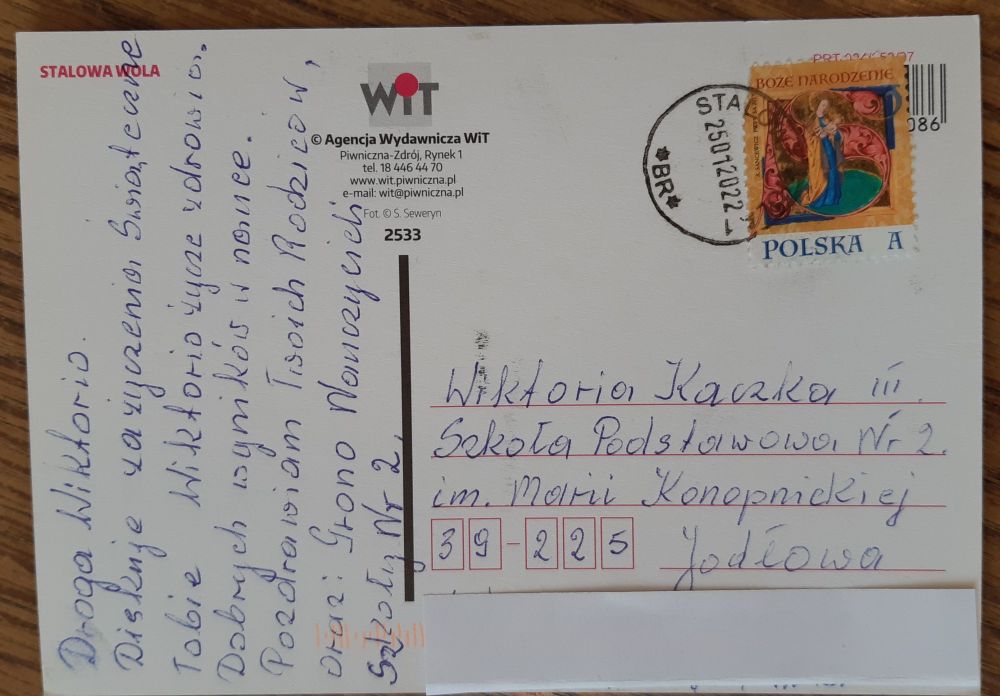 STALOWA WOLA
Droga Wiktorio.
Dziękuje za życzenia Świąteczne
Tobie Wiktorio życzę zdrowia.
Dobrych wyników w nauce.
Pozdrawiam Twoich Rodziców,
oraz Grono Nauczycieli
Szkoły Nr 2.
WiT
© Agencja Wydawnicza WiT
Piwniczna-Zdrój, Rynek 1
tel. 18 446 44 70
www.wit.piwniczna.pl
e-mail: wit@piwniczna.pl
Fot. © S. Seweryn
2533
STA
25012022
*BR*
BOŻE NARODZENIE
POLSKA A
086
Wiktoria Kaczka III.
Szkoła Podstawowa Nr 2.
im. Marii Konopnickiej
39-225 Jodłowa